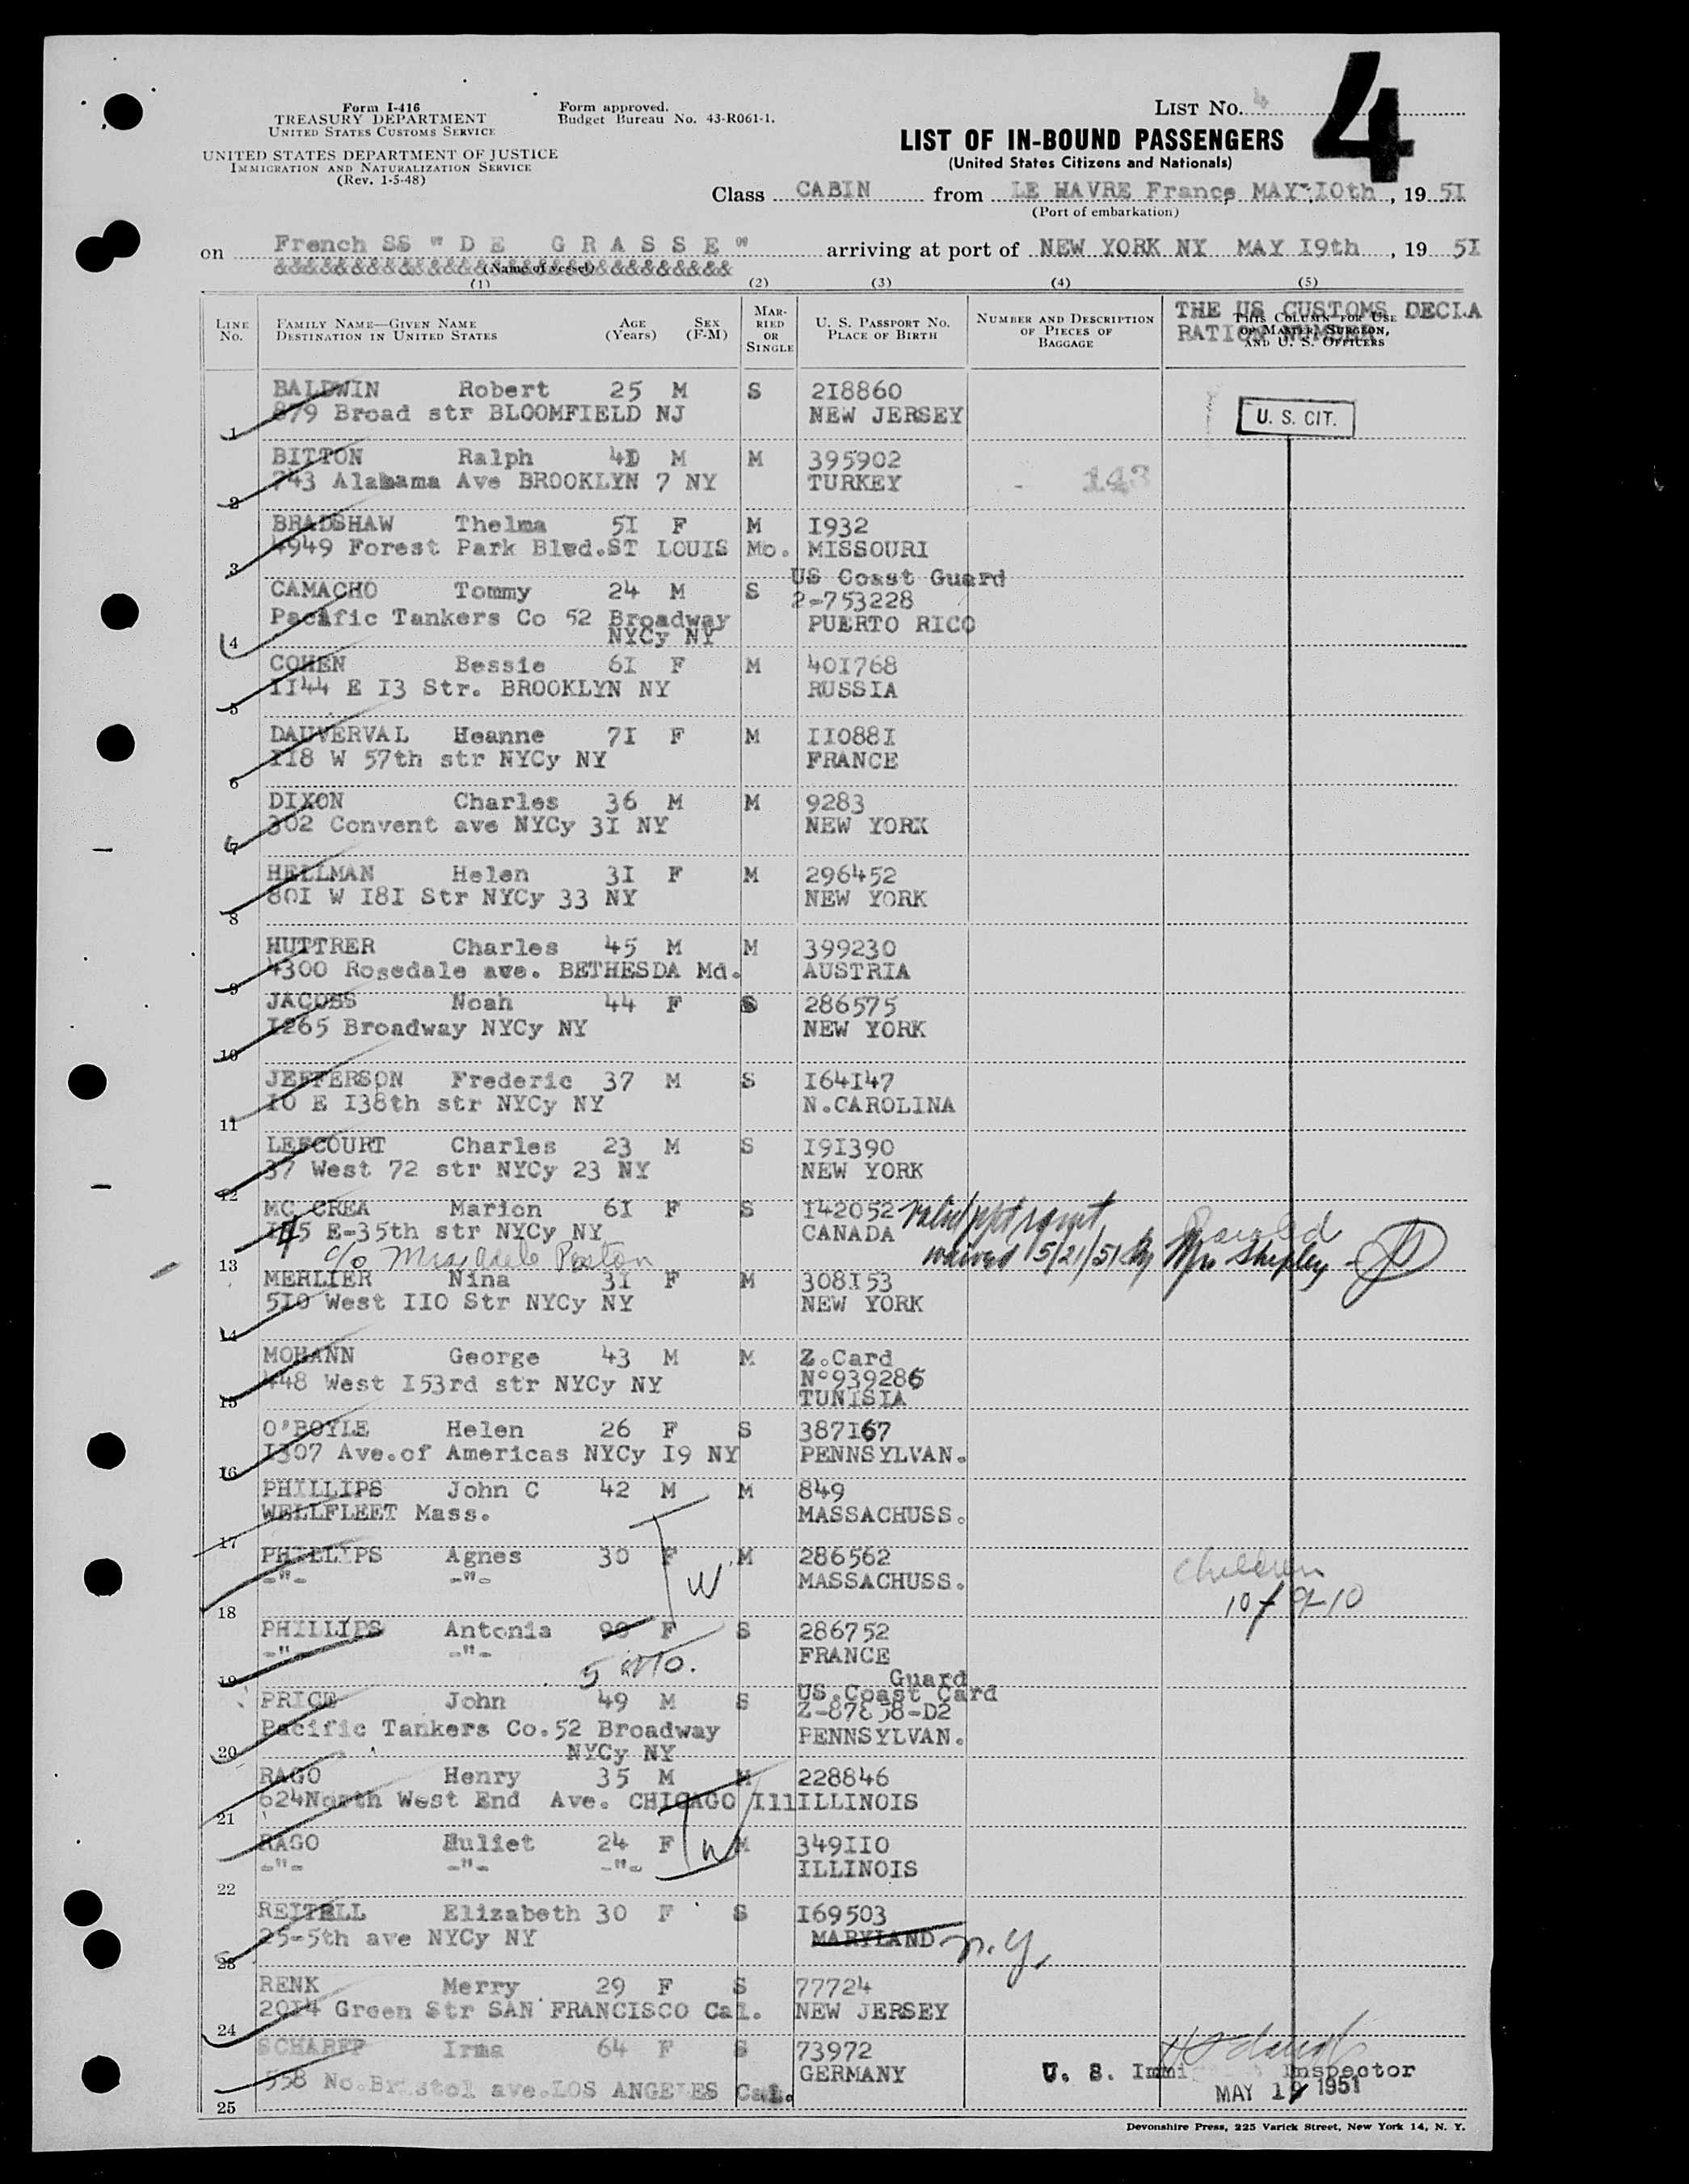 4
Form I-416
TREASURY DEPARTMENT
UNITED STATES CUSTOMS SERVICE
UNITED STATES DEPARTMENT OF JUSTICE
IMMIGRATION AND NATURALIZATION SERVICE
(Rev. 1-5-48)
Form approved.
Budget Bureau No. 43-R061-1.
LIST No. 4
LIST OF IN-BOUND PASSENGERS
(United States Citizens and Nationals)
Class CABIN from LE HAVRE France, MAY 10th, 19 5I
(Port of embarkation)
on French SS " D E G R A S S E " arriving at port of NEW YORK NY MAY I9th, 19 5I
(Name of vessel)
(1) (2) (3) (4) (5)
LINE No.
FAMILY NAME—GIVEN NAME
DESTINATION IN UNITED STATES
AGE (Years)
SEX (F-M)
MARRIED OR SINGLE
U. S. PASSPORT NO.
PLACE OF BIRTH
NUMBER AND DESCRIPTION OF PIECES OF BAGGAGE
THE US CUSTOMS DECLA
RATION NUMBER
THIS COLUMN FOR USE OF MASTER, SURGEON, AND U. S. OFFICERS
BALDWIN Robert 25 M S 2I8860
879 Broad str BLOOMFIELD NJ NEW JERSEY
1
U. S. CIT.
BITTON Ralph M M 395902
743 Alabama Ave BROOKLYN 7 NY TURKEY
2
143
BRADSHAW Thelma 5I F M I932
4949 Forest Park Blvd.ST LOUIS Mo. MISSOURI
3
US Coast Guard
CAMACHO Tommy 24 M S 2-753228
Pacific Tankers Co 52 Broadway PUERTO RICO
NYCy NY
4
COHEN Bessie 6I F M 40I768
II44 E I3 Str. BROOKLYN NY RUSSIA
5
DAUVERVAL Heanne 7I F M II088I
II8 W 57th str NYCy NY FRANCE
6
DIXON Charles 36 M M 9283
302 Convent ave NYCy 3I NY NEW YORK
7
HELLMAN Helen 3I F M 296452
80I W I8I Str NYCy 33 NY NEW YORK
8
HUTTRER Charles 45 M M 399230
4300 Rosedale ave. BETHESDA Md. AUSTRIA
9
JACOBS Noah 44 F S 286575
I265 Broadway NYCy NY NEW YORK
10
JEFFERSON Frederic 37 M S I64I47
I0 E I38th str NYCy NY N.CAROLINA
11
LESCOURT Charles 23 M S I9I390
37 West 72 str NYCy 23 NY NEW YORK
12
MC CREA Marion 6I F S I42052
E-35th str NYCy NY CANADA
c/o Mrs Adele Poston
waived 5/21/51 by Mrs Shipley
13
MERLIER Nina 3I F M 308I53
5I0 West II0 Str NYCy NY NEW YORK
14
MOHANN George 43 M M Z.Card
448 West I53rd str NYCy NY N°939286
TUNISIA
15
O'BOYLE Helen 26 F S 387I67
I307 Ave.of Americas NYCy I9 NY PENNSYLVAN.
16
PHILLIPS John C 42 M M 849
WELLFLEET Mass. MASSACHUSS.
17
PHILLIPS Agnes 30 F M 286562
-"- -"- MASSACHUSS.
W
18
Children
PHILLIPS Antonia F S 286752
-"- -"- FRANCE
5 mo.
19
Guard
US Coast Card
PRICE John 49 M S
Pacific Tankers Co.52 Broadway PENNSYLVAN.
NYCy NY
20
RAGO Henry 35 M M 228846
624North West End Ave. CHICAGO Ill ILLINOIS
21
RAGO Huliet 24 F M 349II0
-"- -"- -"- ILLINOIS
W
22
REITELL Elizabeth 30 F S I69503
25-5th ave NYCy NY MARYLAND N.Y.
23
RENK Merry 29 F S 77724
20I4 Green Str SAN FRANCISCO Cal. NEW JERSEY
24
SCHARFF Irma 64 F S 73972
558 No.Bristol ave.LOS ANGELES Cal. GERMANY
25
U. S. Immi Inspector
MAY 19 1951
Devonshire Press, 225 Varick Street, New York 14, N. Y.